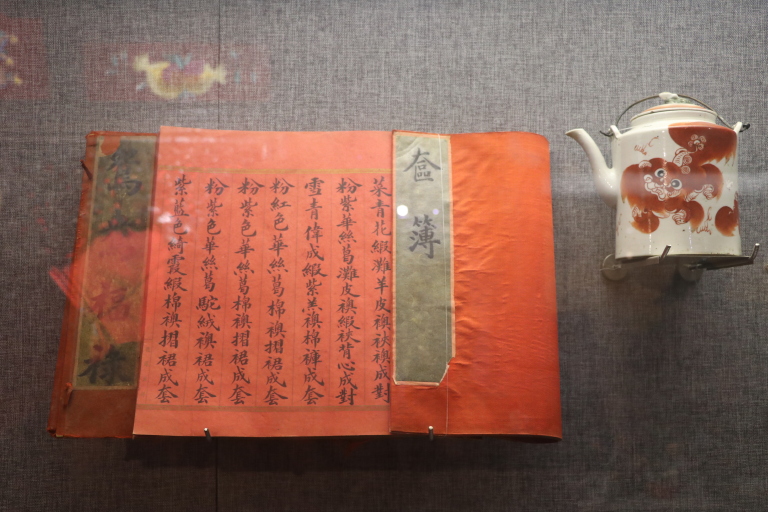 奩簿
青花緞灘羊皮襖裌襖成對
粉紫華絲葛灘皮襖緞裌背心成對
雪青偉成緞紫羔襖棉褲成套
粉紅色華絲葛棉襖摺裙成套
粉紫色華絲葛棉襖摺裙成套
粉紫色華絲葛駝絨襖裙成套
紫藍色綺霞緞棉襖摺裙成套
福